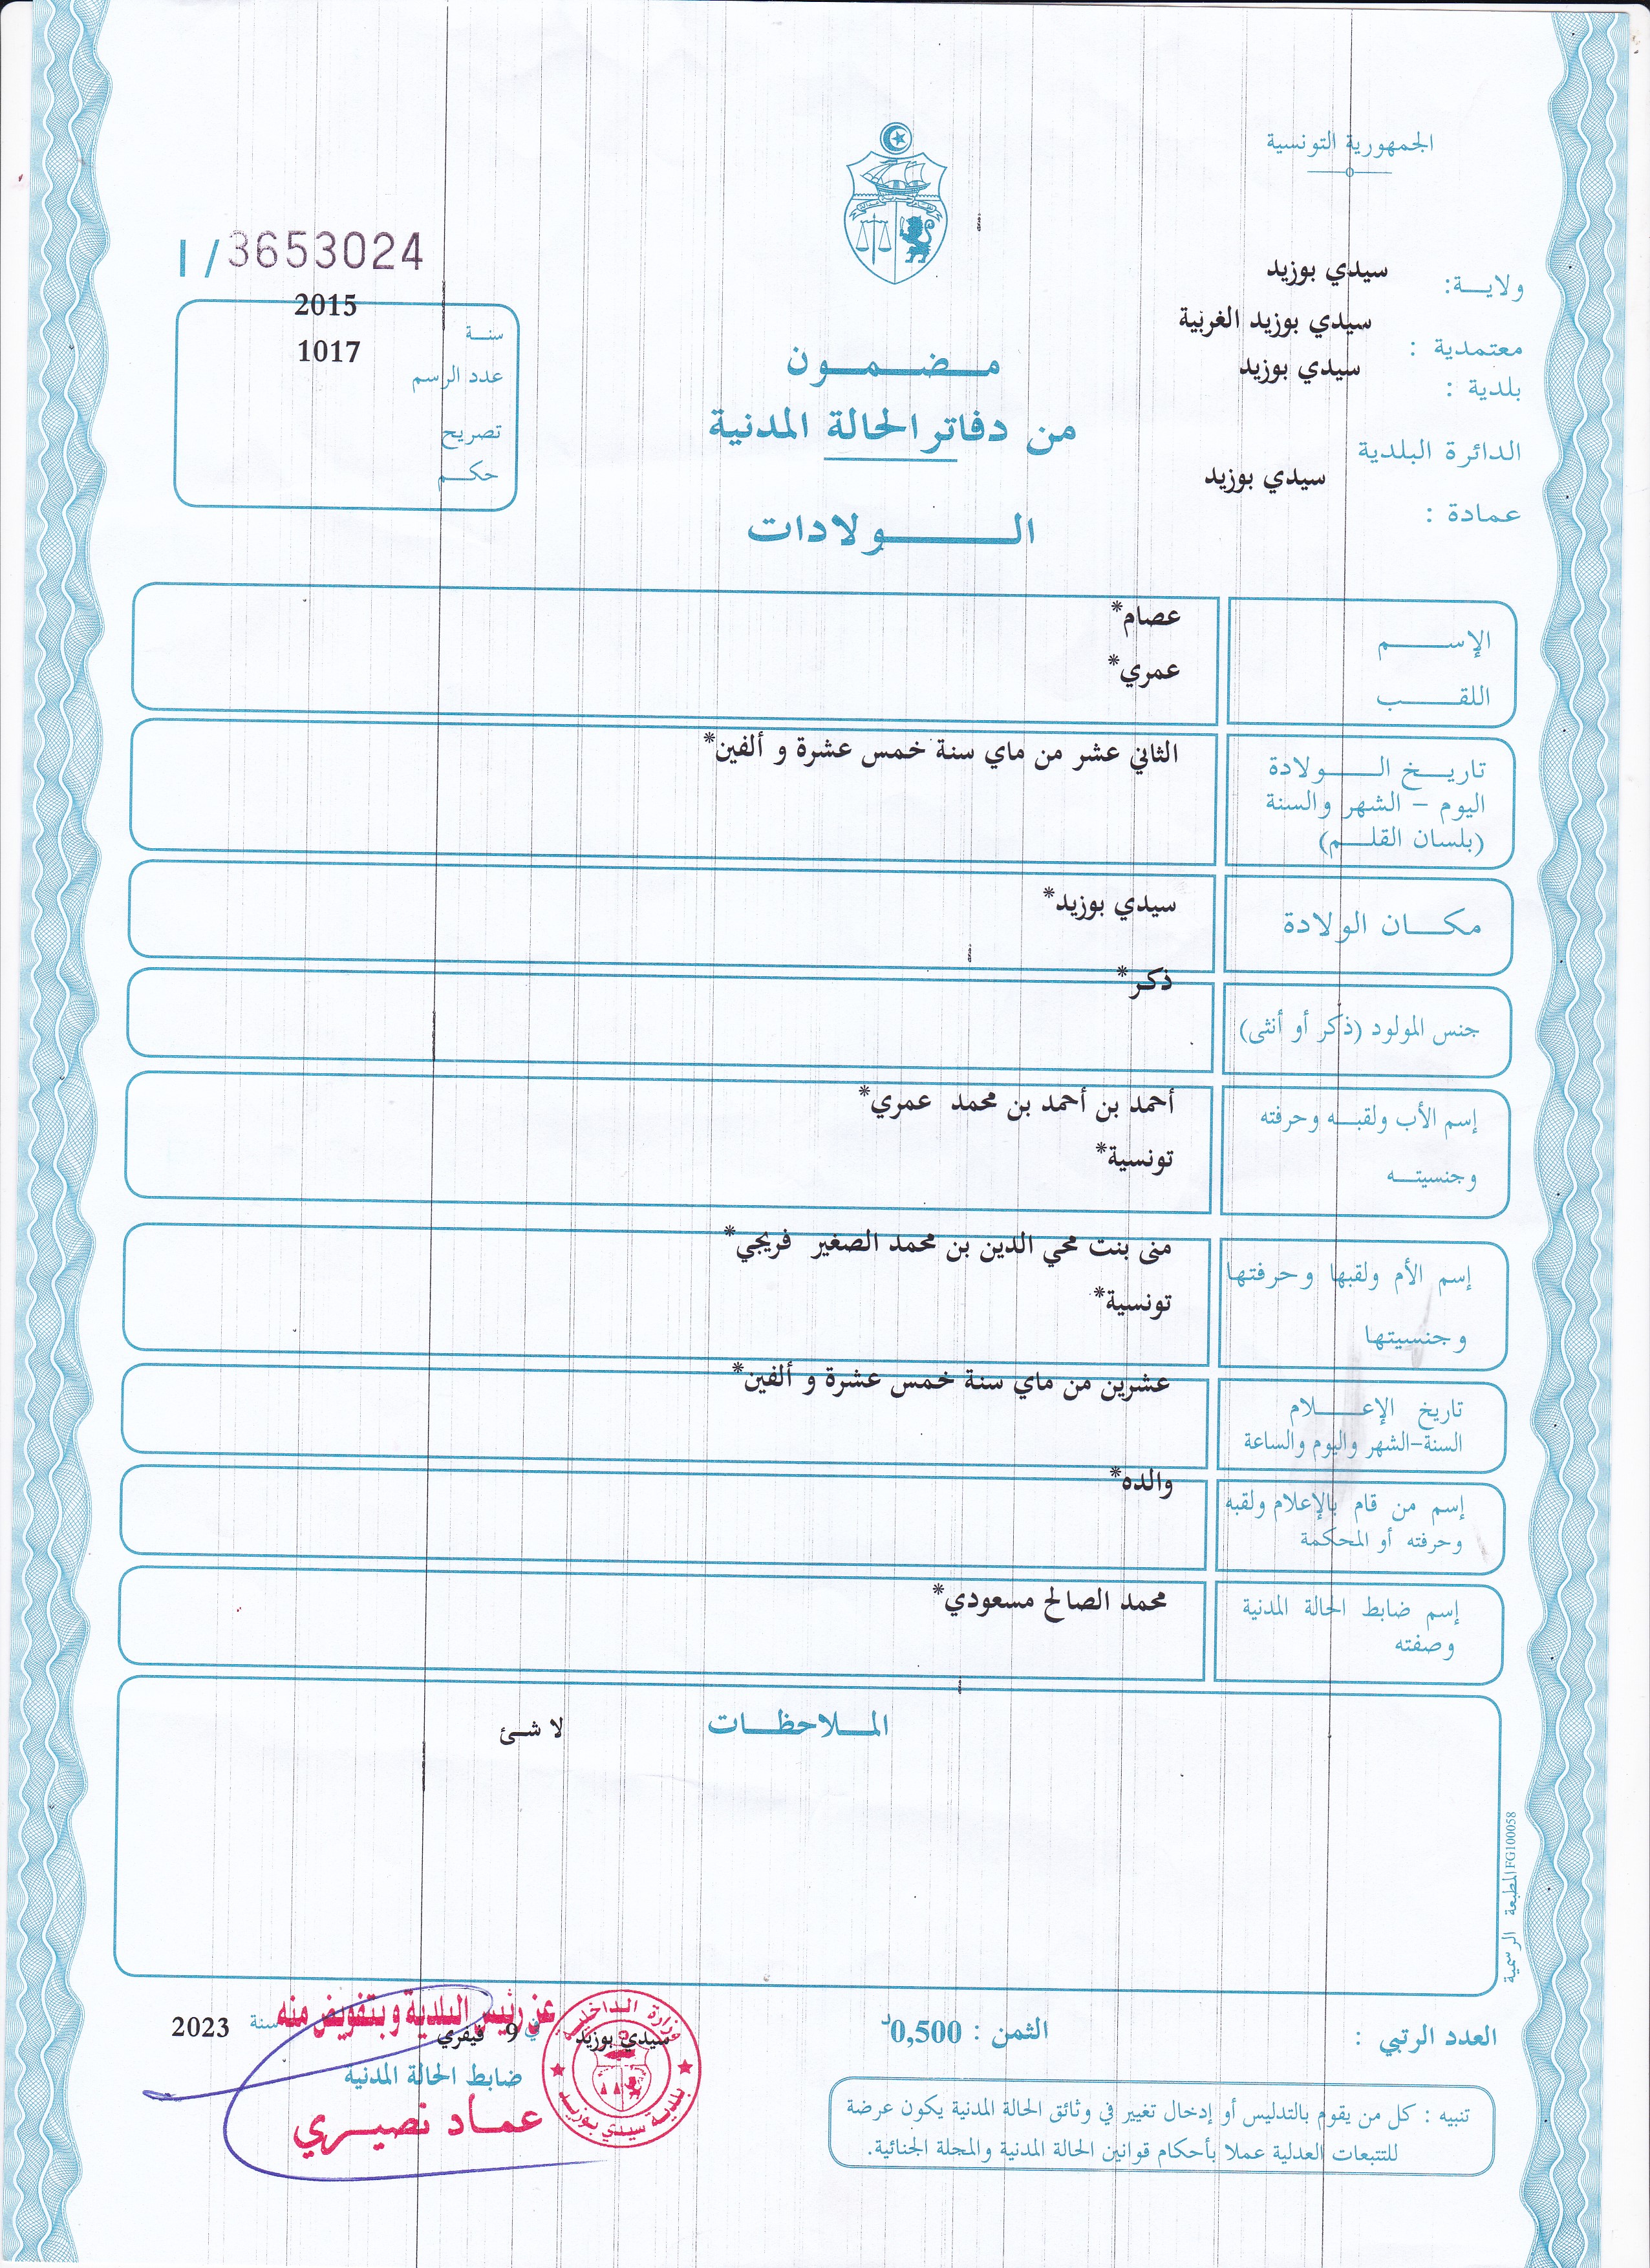 الجمهورية التونسية
I / 3653024
ولايـــة: سيدي بوزيد
معتمدية : سيدي بوزيد الغربية
بلدية : سيدي بوزيد
الدائرة البلدية
سيدي بوزيد
عمادة :
سنـة 2015
عدد الرسم 1017
تصريح
حكــم
مـضـمـون
من دفاتر الحالة المدنية
الـــولادات
الإســـم عصام*
اللقــب عمري*
تاريــخ الـــولادة الثاني عشر من ماي سنة خمس عشرة و ألفين*
اليوم – الشهر والسنة
(بلسان القلـــم)
مكـــان الولادة سيدي بوزيد*
جنس المولود (ذكر أو أنثى) ذكر*
إسم الأب ولقبـــه وحرفته أحمد بن أحمد بن محمد عمري*
وجنسيتــه تونسية*
إسم الأم ولقبها وحرفتها منى بنت محي الدين بن محمد الصغير فريجي*
وجنسيتها تونسية*
تاريخ الإعـــلام عشرين من ماي سنة خمس عشرة و ألفين*
السنة-الشهر واليوم والساعة
إسم من قام بالإعلام ولقبه والده*
وحرفته أو المحكمة
إسم ضابط الحالة المدنية محمد الصالح مسعودي*
وصفته
المــلاحظــات لا شئ
المطبعة الرسمية FG100058
العدد الرتبي :
الثمن : 0,500د
عن رئيس البلدية وبتفويض منه
سيدي بوزيد في 9 فيفري سنة 2023
ضابط الحالة المدنية
عمــاد نصيــري
وزارة الـداخلية
بلدية سيدي بوزيد
تنبيه : كل من يقوم بالتدليس أو إدخال تغيير في وثائق الحالة المدنية يكون عرضة
للتتبعات العدلية عملا بأحكام قوانين الحالة المدنية والمجلة الجنائية.